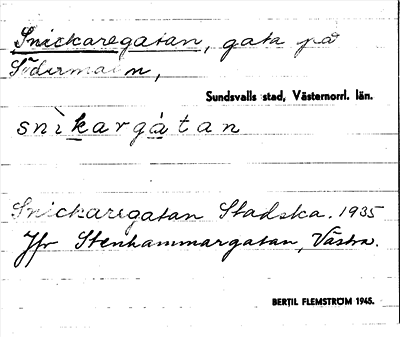 Snickaregatan, gata på
Södermalm,
Sundsvalls stad, Västernorrl. län.
snìkargàtan
Snickaregatan Stadska. 1935
Jfr Stenhammargatan, Västra.
BERTIL FLEMSTRÖM 1945.